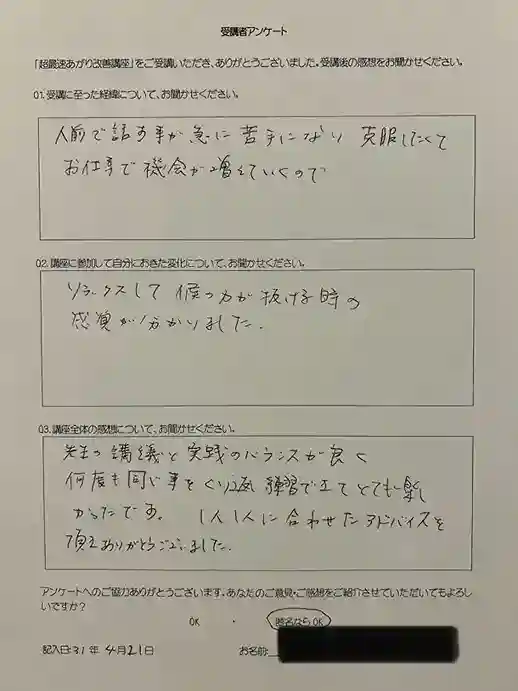 受講者アンケート
「超最速あがり改善講座」をご受講いただき、ありがとうございました。受講後の感想をお聞かせください。
01.受講に至った経緯について、お聞かせください。
人前で話す事が急に苦手になり 克服したくて
お仕事で機会が増えていくので
02.講座に参加して自分におきた変化について、お聞かせください。
リラックスして 喉の力が抜ける時の
感覚が分かりました。
03.講座全体の感想について、お聞かせください。
先生の講義と実践のバランスが良く
何度も同じ事をくり返し練習できてとても楽し
かったです。 1人1人に合わせたアドバイスを
頂きありがとうございました。
アンケートへのご協力ありがとうございます。あなたのご意見・ご感想をご紹介させていただいてもよろし
いですか?
OK ・ 匿名ならOK
記入日:31年 4月21日 お名前: